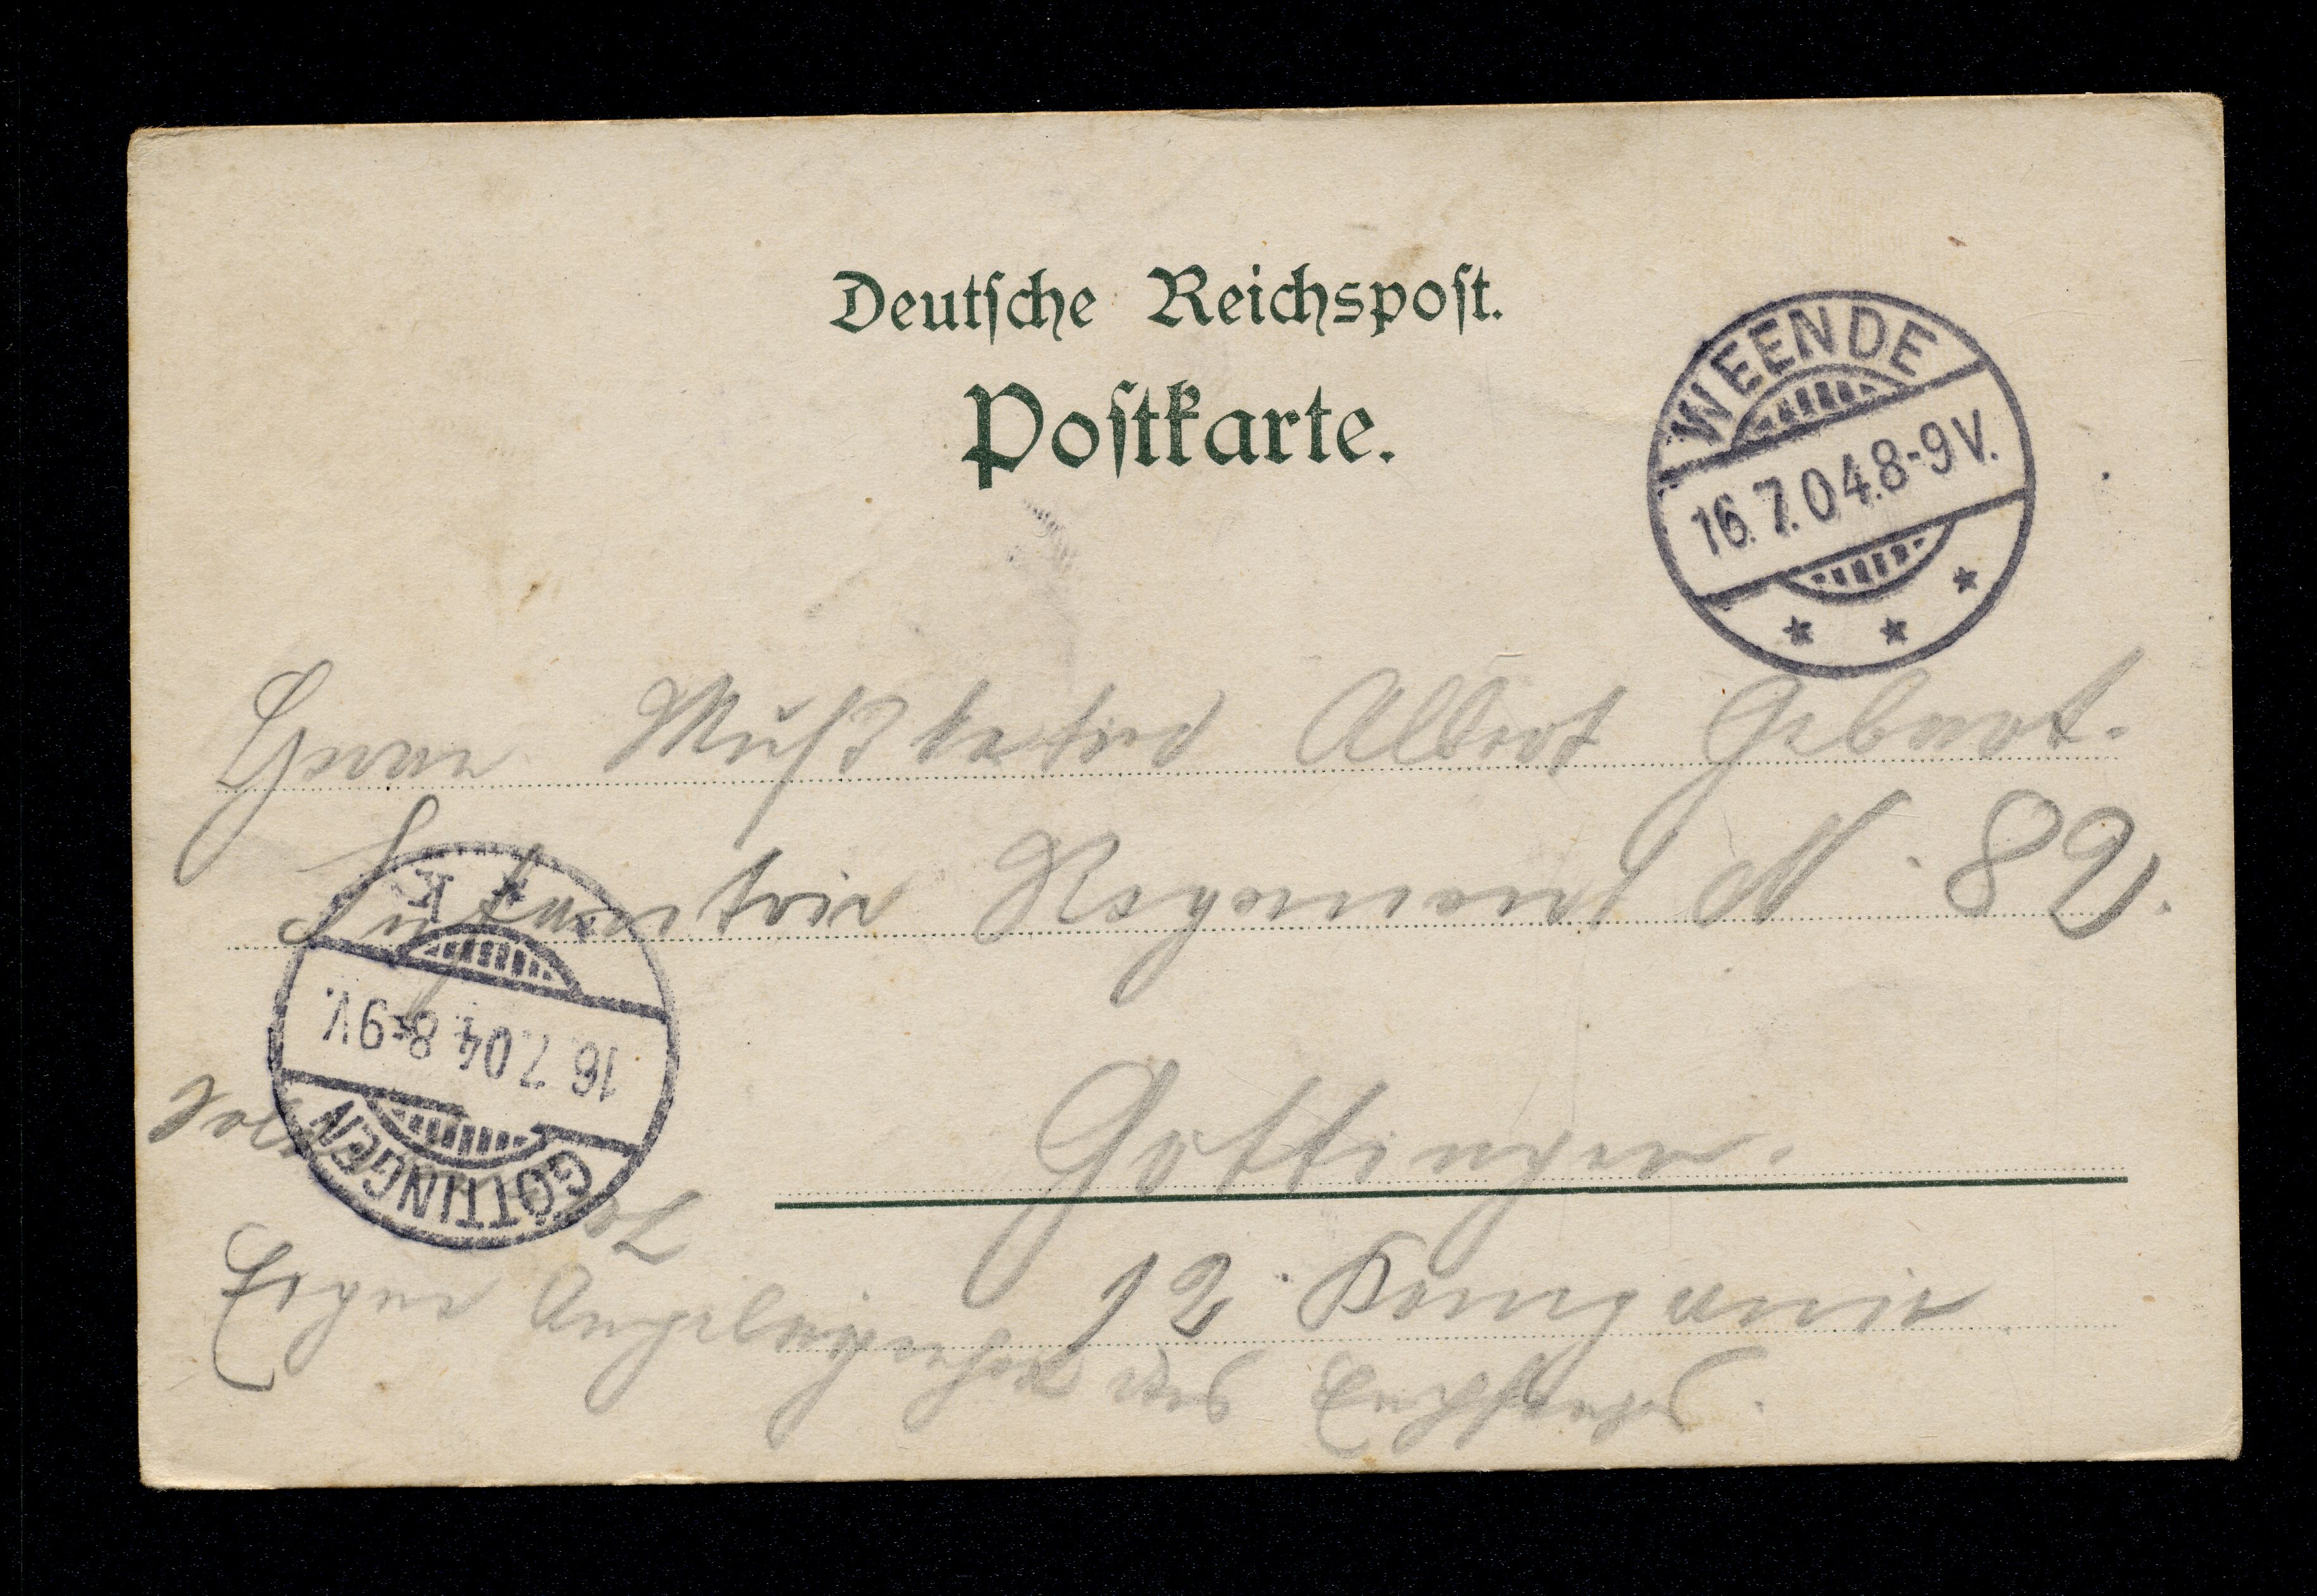 Deutſche Reichspoſt.
Poſtkarte.
WEENDE
16.7.04.8-9V.
Herrn Mußketier Albert Gebart.
Infantrie Regement N. 82.
GÖTTINGEN
16.7.04.8-9V.
Göttingen.
12. Kompanie
Eigne Angelegenheit des Empfängers.